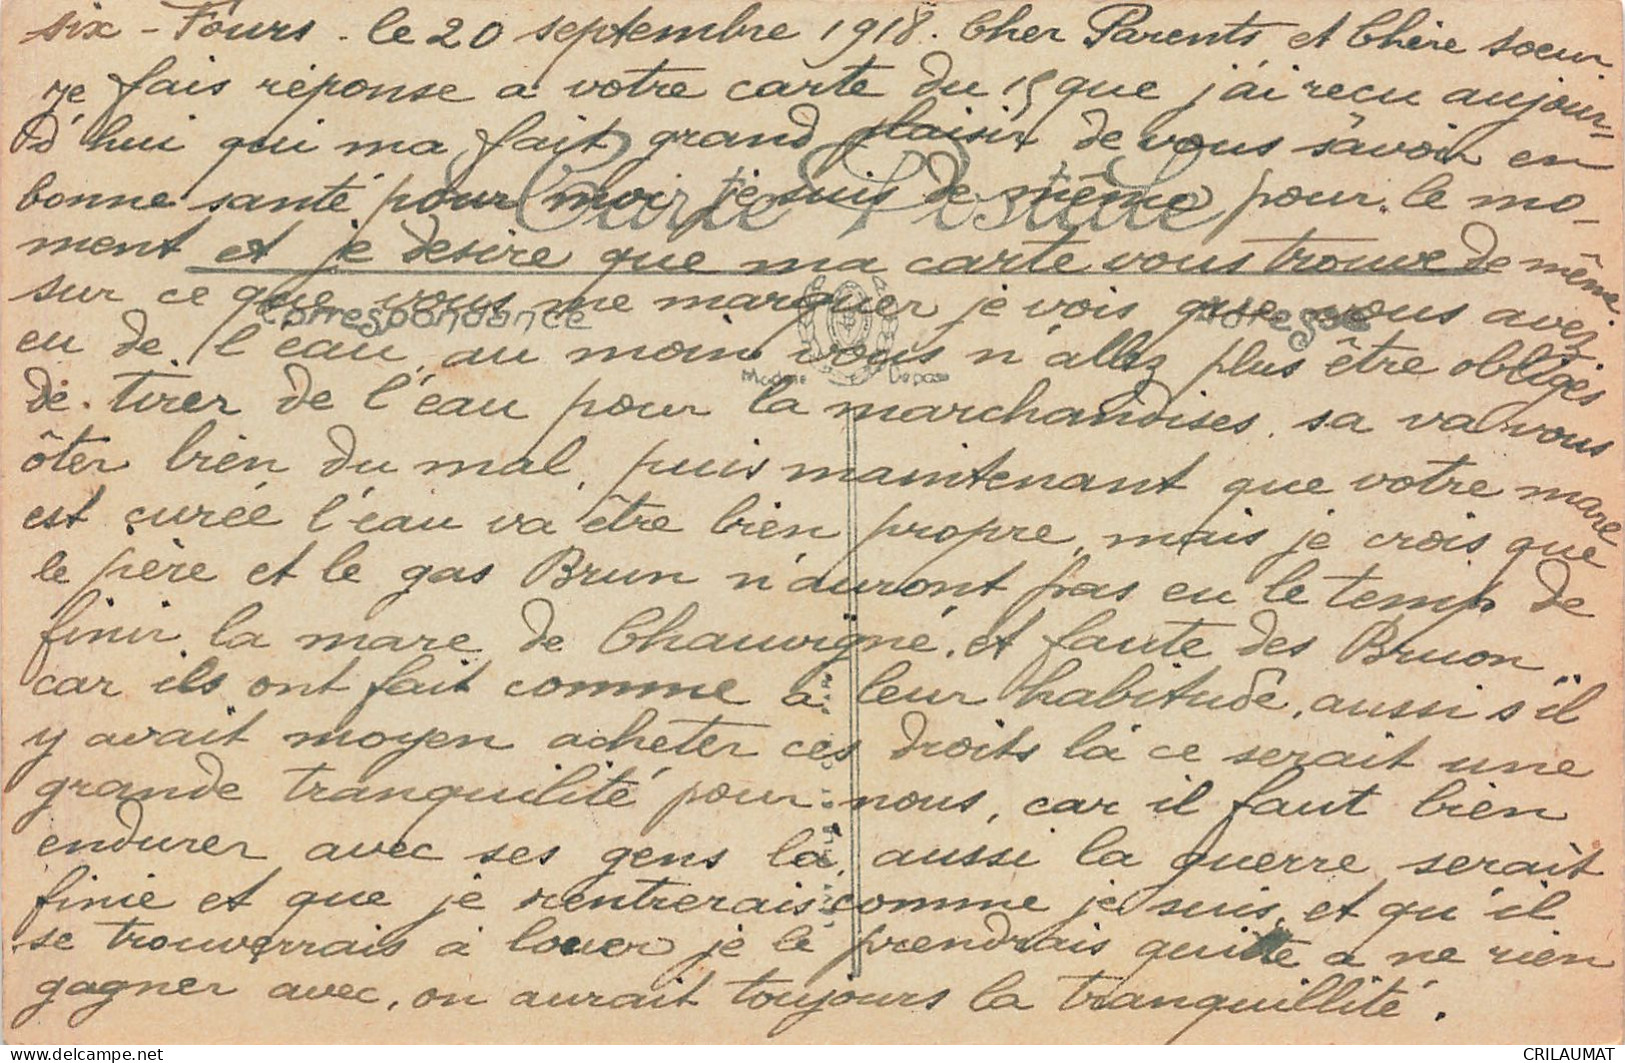 six - Fours. le 20 septembre 1918. Cher Parents et Chère soeur.
je fais réponse a votre carte du 15 que j'ai recu aujour-
d'hui qui ma fait grand plaisir de vous savoir en
bonne santé pour moi je suis de même pour le mo-
Carte Postale
ment et je desire que ma carte vous trouve de même.
sur ce que vous me marquer je vois que vous avez
Correspondance Adresse
eu de l'eau, au moin vous n'allez plus être obligés
Modèle Déposé
de tirer de l'eau pour la marchandises. sa va vous
ôter bien du mal, puis maintenant que votre mare
est curée l'eau va être bien propre, mais je crois que
le père et le gas Brun n'auront pas eu le temp de
finir la mare de Chauvigné, et faute des Bruon.
car ils ont fait comme a leur habitude, aussi s'il
y avait moyen acheter ces droits là ce serait une
grande tranquilité pour nous, car il faut bien
endurer avec ses gens la, aussi la guerre serait
finie et que je rentrerais comme je suis, et qu'il
se trouverrais à louer je lé prendrais quitte a ne rien
gagner avec, on aurait toujours la tranquillité.
CRILAUMAT